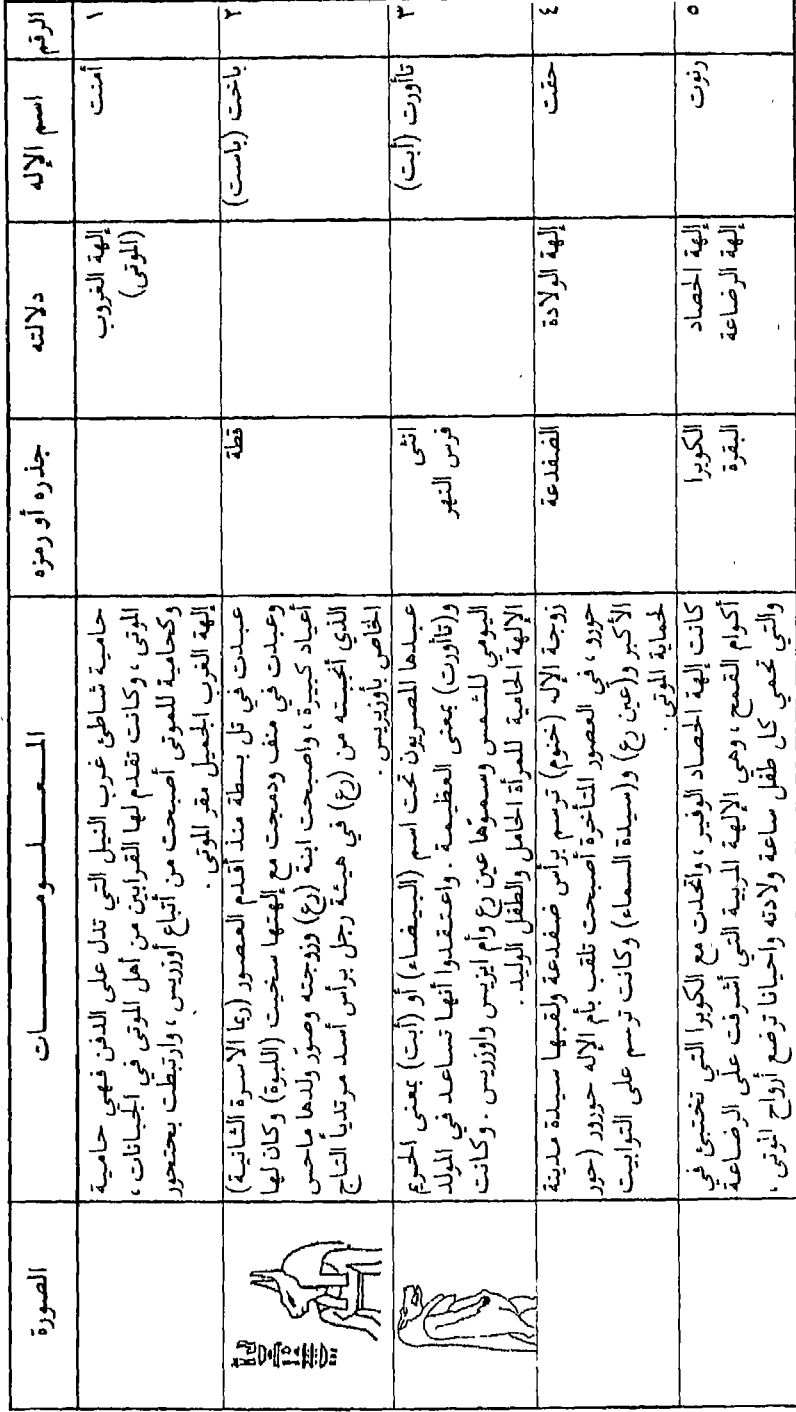 الرقم
اسم الإله
دلالته
جذره أو رمزه
المعلومات
الصورة
١
أمنت
إلهة الغروب
(الموتى)
حامية شاطئ غرب النيل التي تدل على الدفن فهي حامية
الموتى، وكانت تقدم لها القرابين من أهل الموتى في الجبانات،
وكحامية للموتى أصبحت من أتباع أوزريس، وارتبطت بحتحور
إلهة الغرب الجميل مقر الموتى.
٢
باخت (باست)
قطة
عبدت في تل بسطة منذ أقدم العصور (ربما الاسرة الثانية)
وعبدت في منف ودمجت مع إلهتها سخيت (اللبوة) وكان لها
أعياد كبيرة، واصبحت ابنة (رع) وزوجته وصور ولدها ماحس
الذي أنجبته من (رع) في هيئة رجل برأس أسد مرتدياً التاج
الخاص بأوزيريس.
٣
تاأورت (أبت)
انثى
فرس النهر
عبدها المصريون تحت اسم (البيضاء) أو (أبت) بمعنى الحريم
و(تاأورت) بمعنى العظيمة. واعتقدوا أنها تساعد في المولد
اليومي للشمس وسموّها عين رع وأم ايزيس واوزريس. وكانت
الإلهة الحامية للمرأة الحامل والطفل الوليد.
٤
حقت
إلهة الولادة
الضفدعة
زوجة الإله (خنوم) ترسم برأس ضفدعة ولقبها سيدة مدينة
حورو، في العصور المتأخرة أصبحت تلقب بأم الإله حورور (حور
الأكبر و(عين رع) و(سيدة السماء) وكانت ترسم على التوابيت
لحماية الموتى.
٥
رنوت
إلهة الحصاد
إلهة الرضاعة
الكوبرا
البقرة
كانت إلهة الحصاد الوفير، واتحدت مع الكوبرا التي تختبئ في
أكوام القمح، وهي الإلهة المربية التي أشرفت على الرضاعة
والتي تحمي كل طفل ساعة ولادته واحيانا ترضع أرواح الموتى،